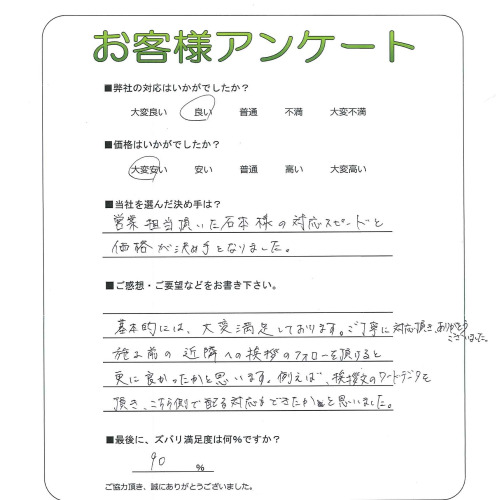 お客様アンケート
■弊社の対応はいかがでしたか？
大変良い 良い 普通 不満 大変不満
■価格はいかがでしたか？
大変安い 安い 普通 高い 大変高い
■当社を選んだ決め手は？
営業担当頂いた石本様の対応スピードと
価格が決め手となりました。
■ご感想・ご要望などをお書き下さい。
基本的には、大変満足しております。ご丁寧に対応頂き、ありがとう
ございました。
施工前の近隣への挨拶のフォローを頂けると
更に良かったかと思います。例えば、挨拶文のワードデータを
頂き、こちら側で配る対応もできたかと思いました。
■最後に、ズバリ満足度は何％ですか？
90 %
ご協力頂き、誠にありがとうございました。